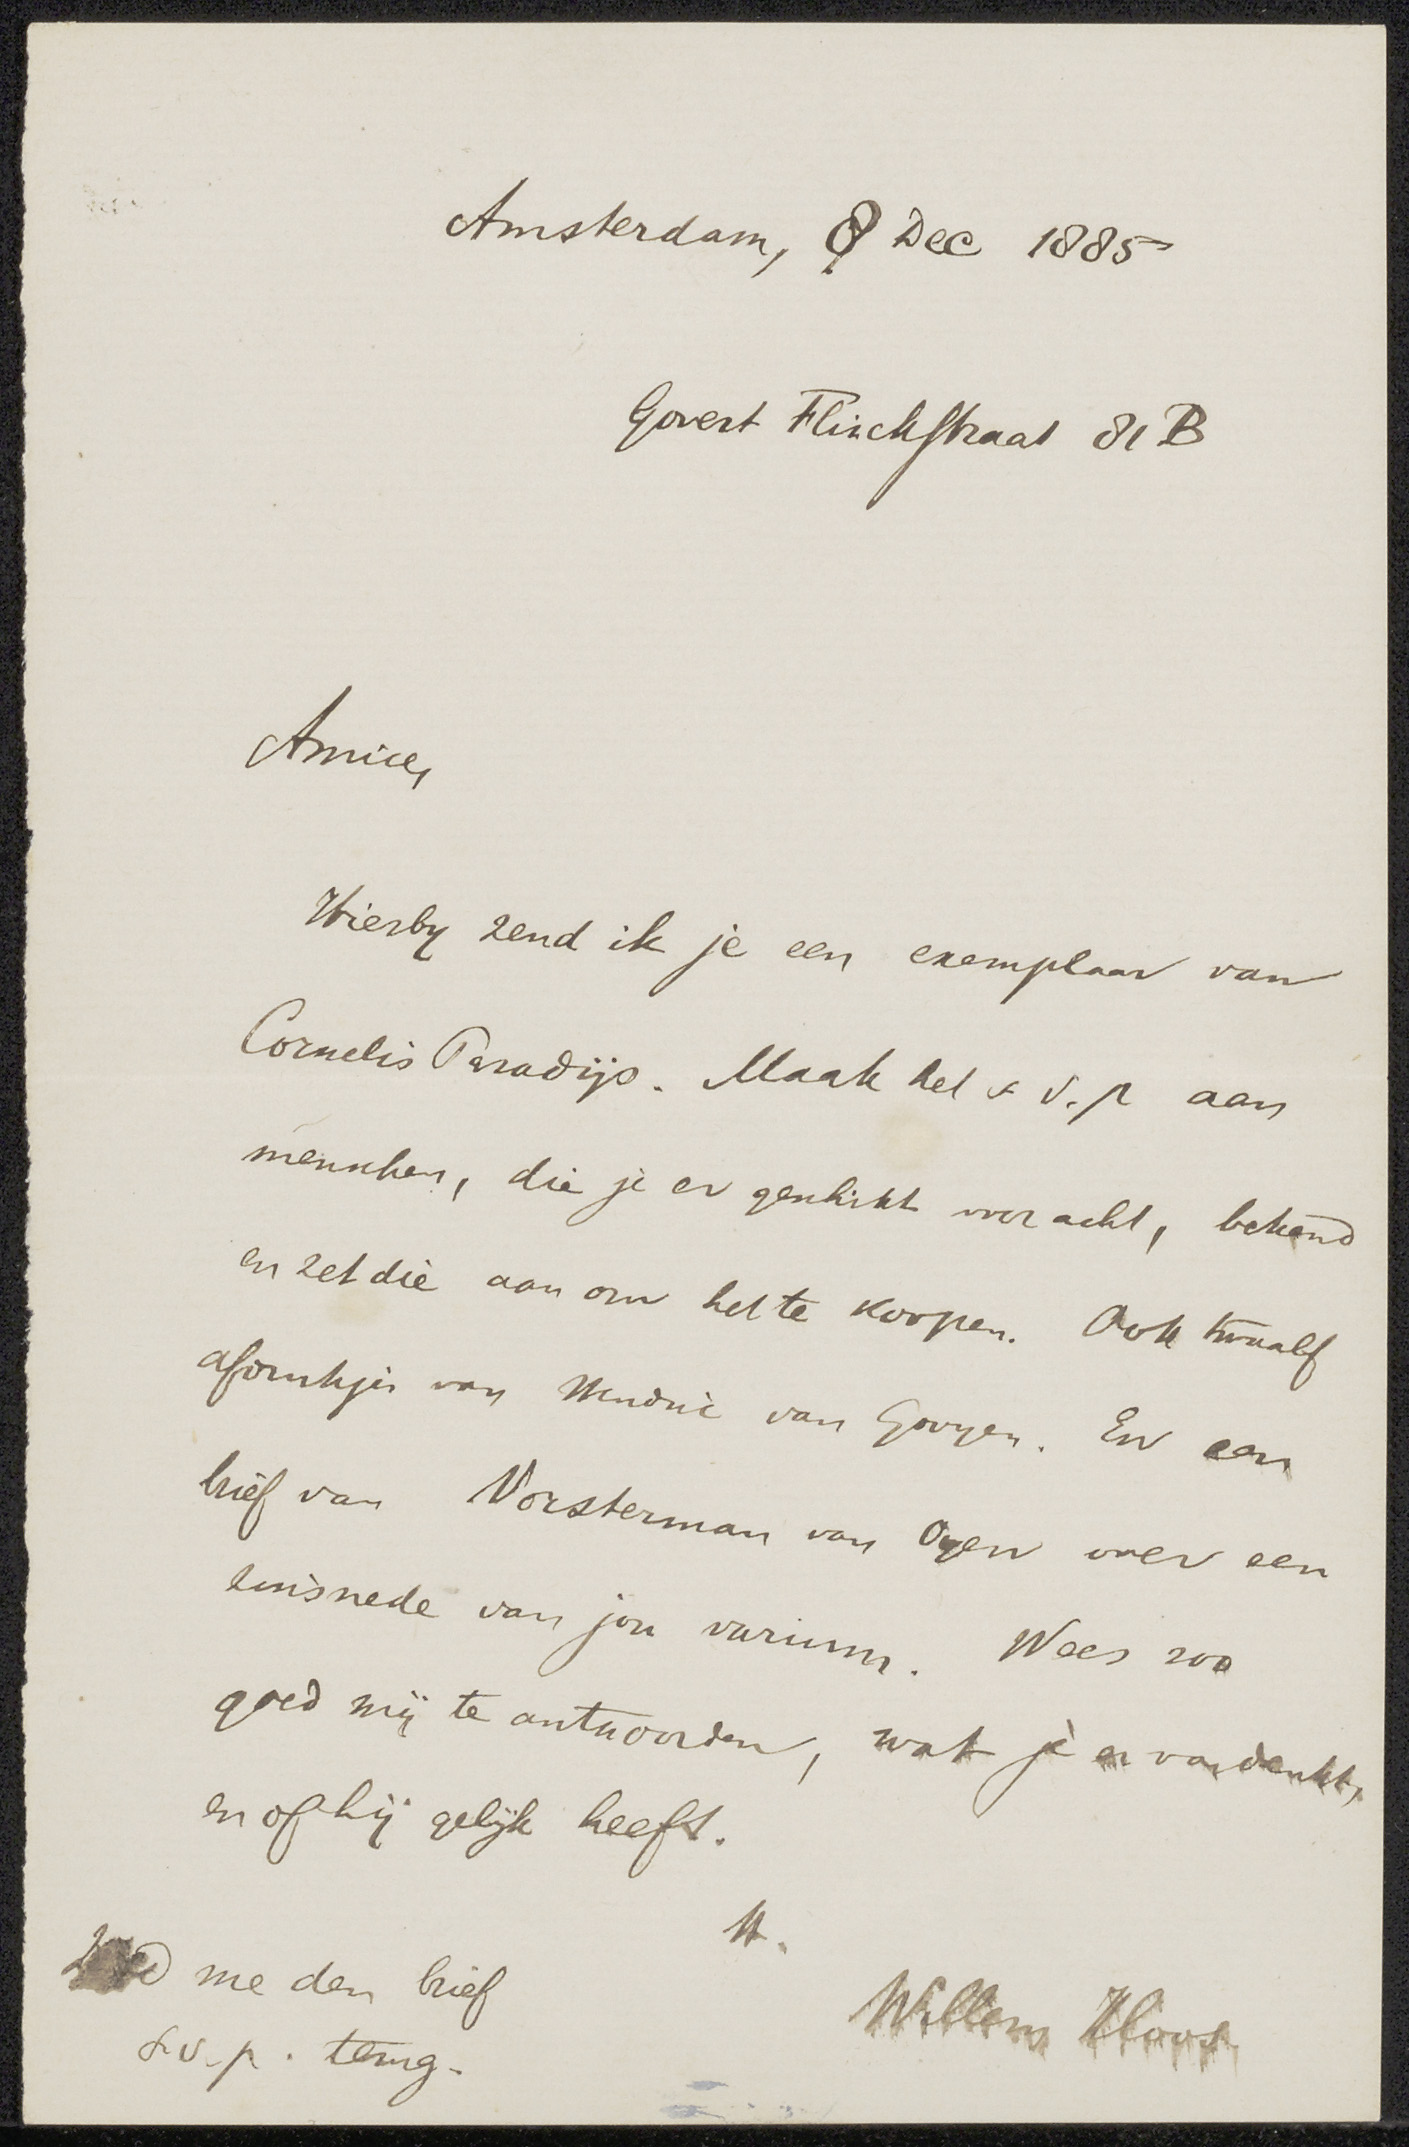 Amsterdam, 8 Dec 1885
Govert Flinckstraat 81 B
Amice,
Hierby zend ik je een exemplaar van
Cornelis Paradijs. Maak het s v. p aan
menschen, die je er geschikt voor acht, bekend
en zet die aan om het te koopen. Ook twaalf
afdrukjes van van Gooyen. En een
brief van Vorsterman van Oyen over een
zinsnede van jou. Wees zoo
goed mij te antwoorden, wat je er van denkt,
en of hij gelijk heeft.
tt.
Willem Kloos
Zend me den brief
s.v.p. terug.